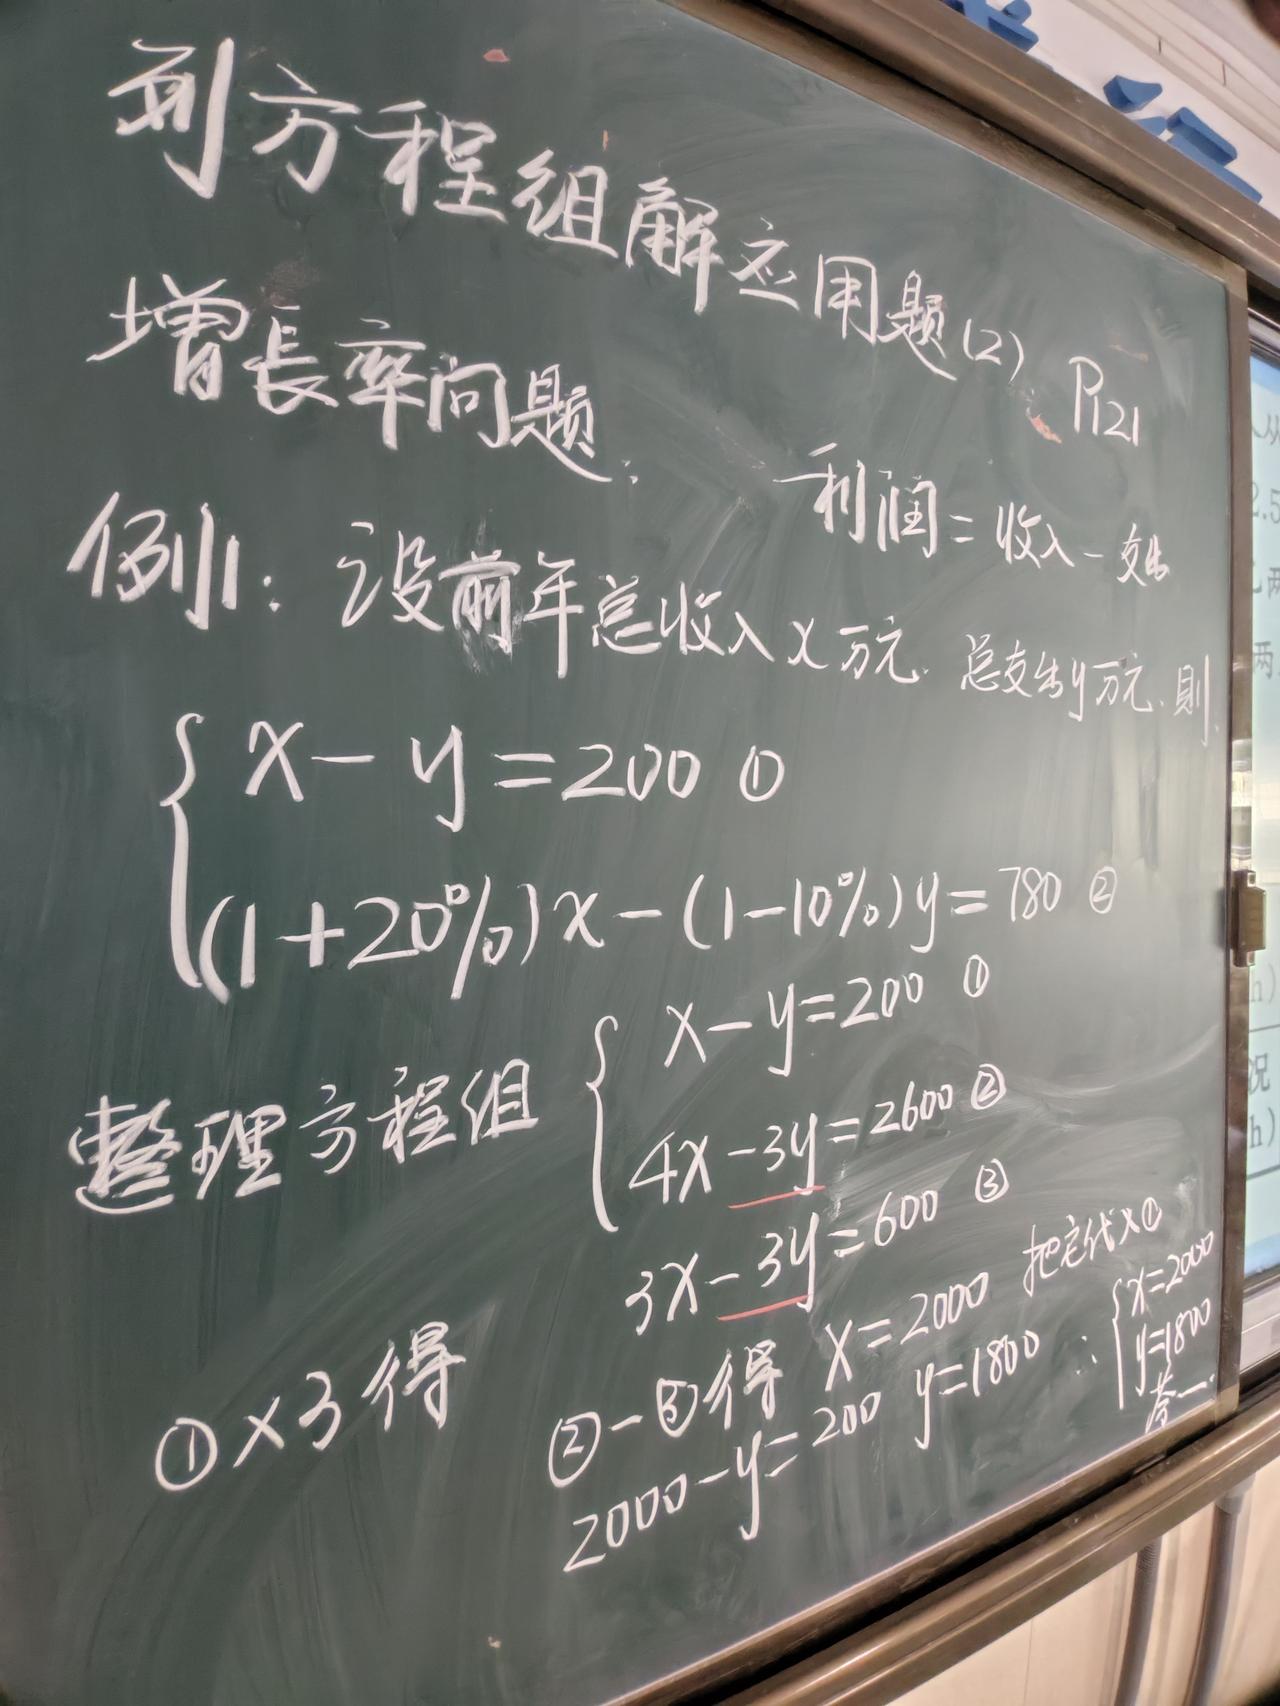 列方程组解应用题(2) P121
增长率问题.
利润=收入-支出
例1: 设前年总收入x万元. 总支出y万元.則
x-y=200 ①
(1+20%)x-(1-10%)y=780 ②
整理方程组
x-y=200 ①
4x-3y=2600 ②
①×3得
3x-3y=600 ③
②-③得 x=2000 把它代入①
2000-y=200 y=1800 ∴ x=2000
y=1800
答一.
2.5
两
两
h)
况
h)